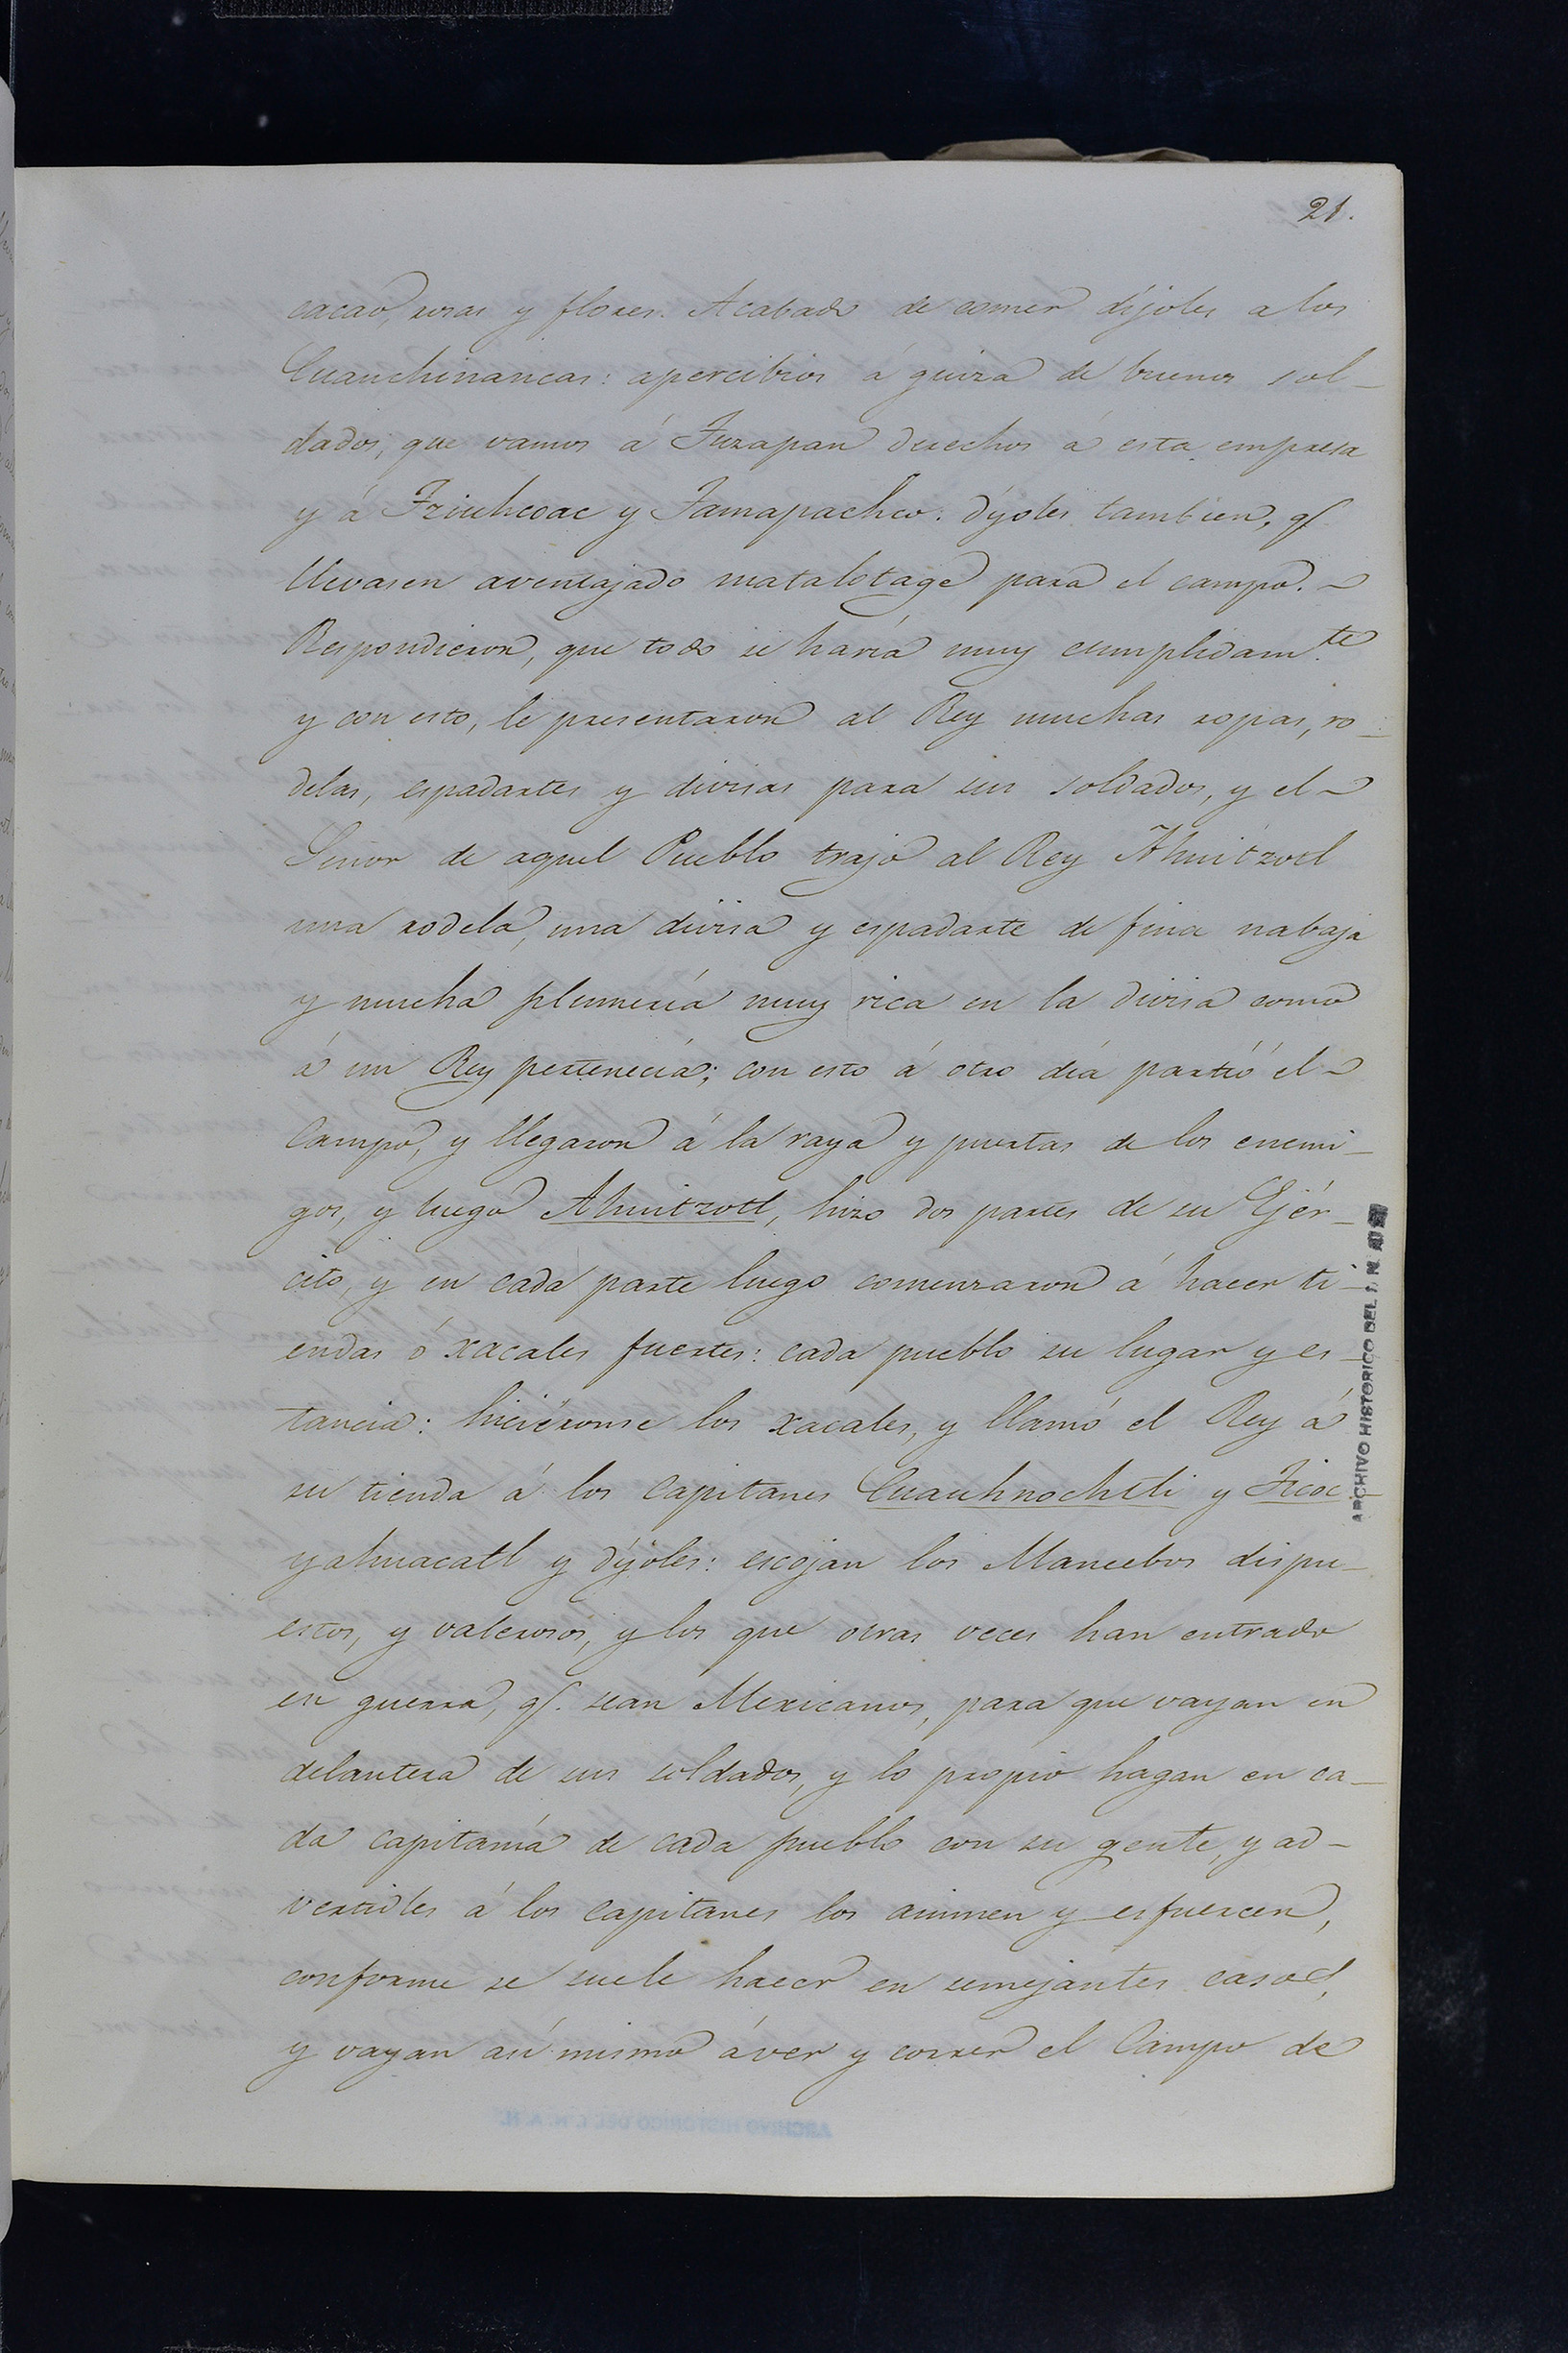 21.
cacao, rosas y flores. Acabado de comer díjoles a los
Cuauchinancas: apercibios á guiza de buenos sol-
dados, que vamos á Tuzapan derechos á esta empresa
y á Tziuhcoac y Tamapachco. díjoles tambien, q.
llevasen aventajado matalotage para el campo.
Respondieron, que todo se haría muy cumplidam.te
y con esto, le presentaron al Rey muchas ropas, ro-
delas, espadartes y divisas para sus soldados, y el
Señor de aquel Pueblo trajo al Rey Ahuitzotl
una rodela, una divisa y espadarte de fina nabaja
y mucha plumería muy rica en la divisa como
á un Rey pertenecía; con esto á otro día partió el
Campo, y llegaron á la raya y puertas de los enemi-
gos, y luego Ahuitzotl, hizo dos partes de su Ejér-
cito, y en cada parte luego comenzaron á hacer ti-
endas ó xacales fuertes: cada pueblo su lugar y es-
tancia: hiciéronse los xacales, y llamó el Rey á
su tienda á los Capitanes Cuauhnochtli y Ticoc-
yahuacatl y díjoles: escojan los Mancebos dispu-
estos, y valerosos, y los que otras veces han entrado
en guerra, q. sean Mexicanos, para que vayan en
delantera de sus soldados, y lo propio hagan en ca-
da capitanía de cada pueblo con su gente, y ad-
vertidles á los capitanes los animen y esfuercen,
conforme se suele hacer en semejantes casos,
y vayan así mismo á ver y correr el Campo de
ARCHIVO HISTORICO DEL I. N. A. H.